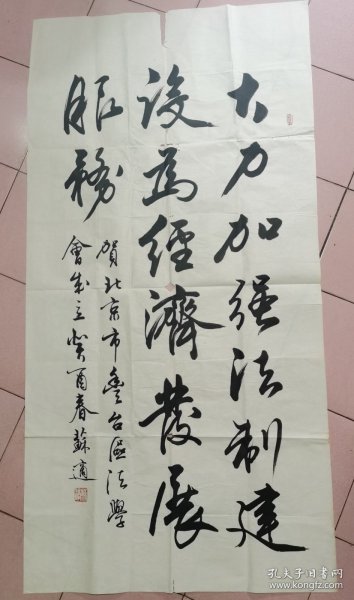 大力加强法制建
设为經濟發展
服務
賀北京市豐台區法學
會成立癸酉春蘇適
孔夫子旧书网
www.kongfz.com